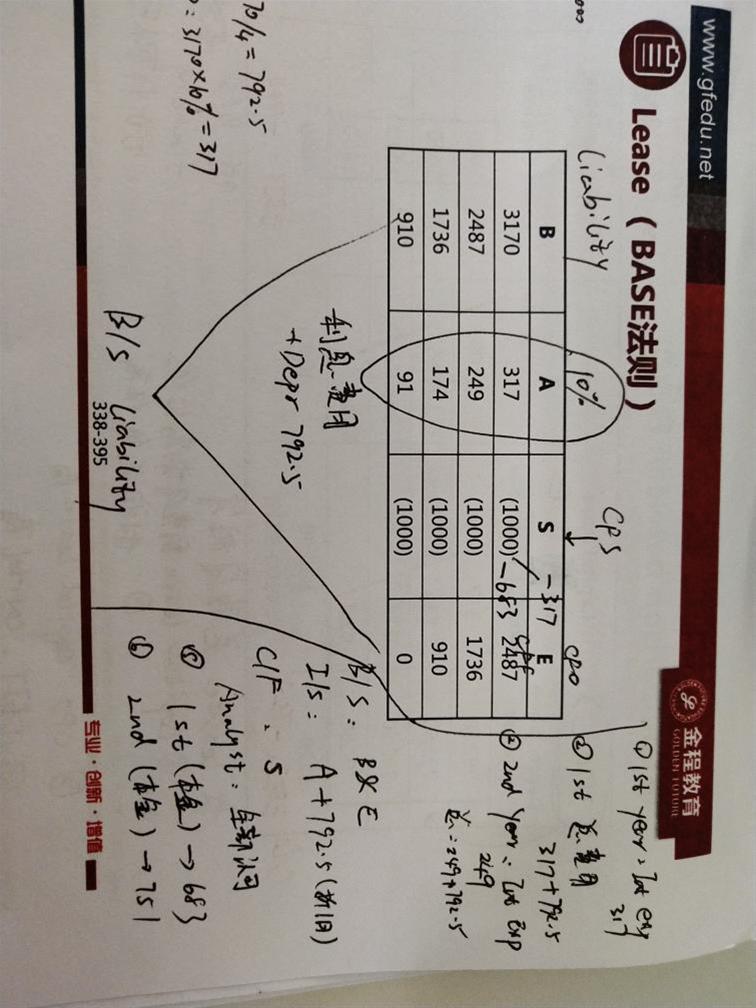 www.gfedu.net
金程教育
GOLDEN FUTURE
Lease（BASE法则）
Liability
10%
CPS
B A S E
3170 317 (1000) 2487
2487 249 (1000) 1736
1736 174 (1000) 910
910 91 (1000) 0
-317
-683
70/4 = 792.5
3170×10% = 317
利息费用
+Depr 792.5
B/S Liability
① 1st year: Int exp
317
② 1st 总费用
317+792.5
2nd year: Int Exp
249
总=249+792.5
B/S: B & E
I/S: A+792.5(折旧)
CF: S
Analyst: 
⑤ 1st (本金) → 683
⑥ 2nd (本金) → 751
338-395
专业·创新·增值